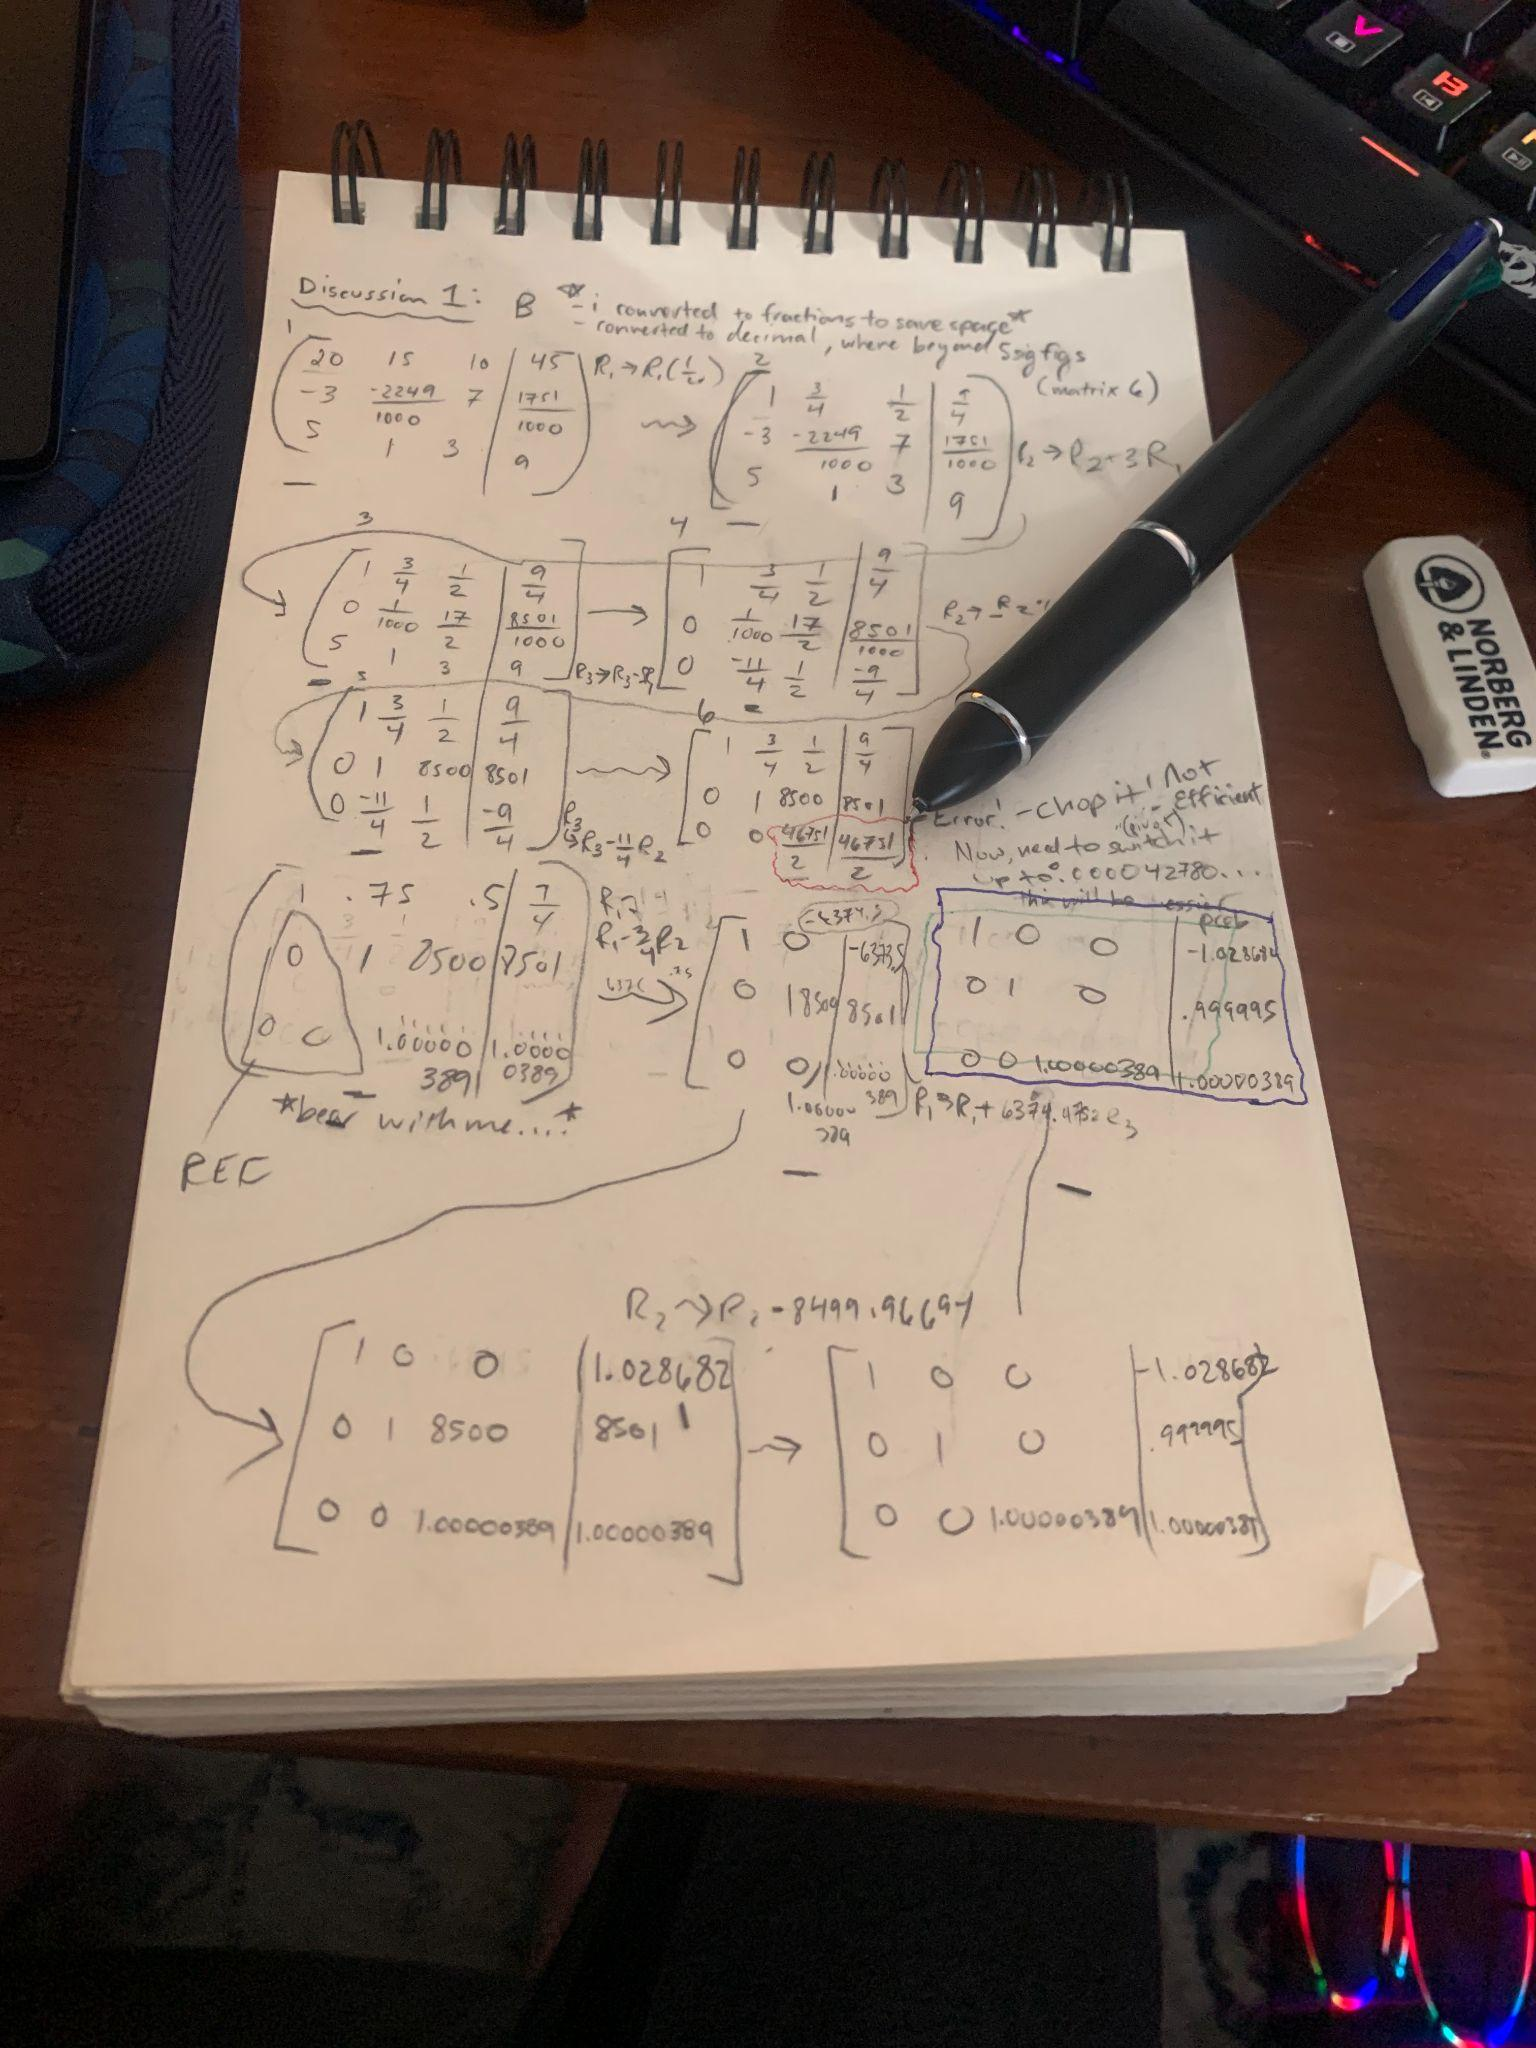 Discussion 1: B
- i converted to fractions to save space*
- converted to decimal, where beyond 5 sig figs
(matrix 6)
1
20 15 10 | 45
-3 -2249/1000 7 | 1751/1000
5 1 3 | 9
R₁→R₁(1/20)
2
1 3/4 1/2 | 9/4
-3 -2249/1000 7 | 1751/1000
5 1 3 | 9
R₂→R₂+3R₁
3
1 3/4 1/2 | 9/4
0 1/1000 17/2 | 8501/1000
5 1 3 | 9
4
1 3/4 1/2 | 9/4
0 1/1000 17/2 | 8501/1000
0 -11/4 1/2 | -9/4
5
1 3/4 1/2 | 9/4
0 1 8500 | 8501
0 -11/4 1/2 | -9/4
R₃→R₃-11/4R₂
6
1 3/4 1/2 | 9/4
0 1 8500 | 8501
0 0 46751/2 | 46751/2
Error! - chop it! Not
Efficient
(pivot)
Now, need to switch it
up to .000042780...
this will be
1 .75 .5 | 7/4
0 1 8500 | 8501
0 0 1.00000389 | 1.00000389
R₁→
R₁-3/4R₂
*bear with me....*
REF
1 0 -6374.5 | -6373.5
0 1 8500 | 8501
0 0 1.00000389 | 1.00000389
R₁→R₁+6374.4752R₃
1 0 0 | -1.028682
0 1 0 | .999995
0 0 1.00000389 | 1.00000389
R₂→R₂-8499.96694
1 0 0 | 1.028682
0 1 8500 | 8501
0 0 1.00000389 | 1.00000389
1 0 0 | -1.028682
0 1 0 | .999995
0 0 1.00000389 | 1.00000389
NORBERG
& LINDEN
V
B